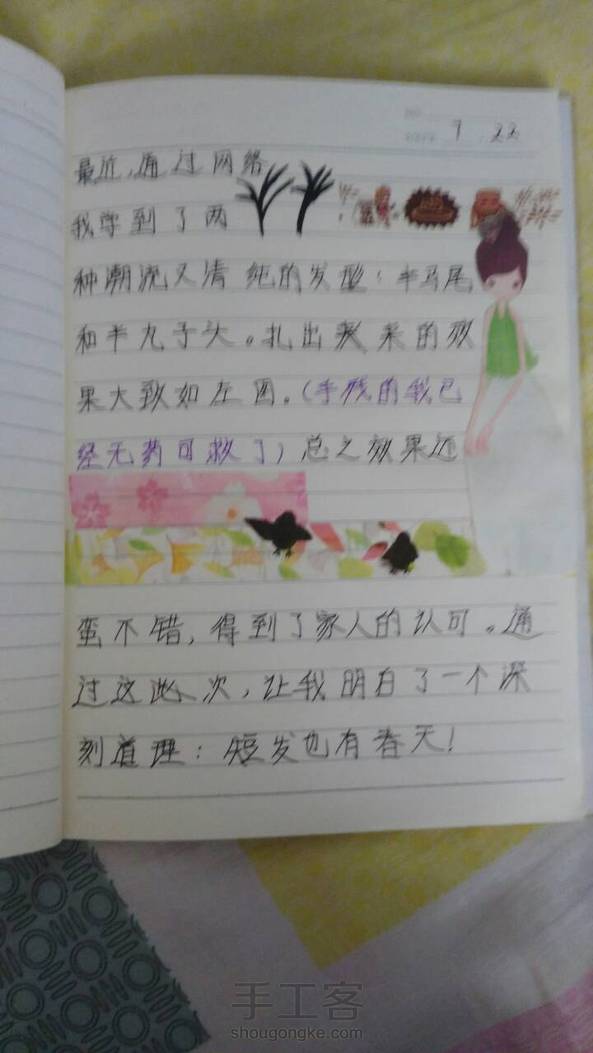 7.22
最近,通过网络
我学到了两
种潮流又清纯的发型:半马尾
和半丸子头。扎出来的效
果大致如左图。(手残的我已
经无药可救了)总之效果还
蛮不错,得到了家人的认可。通
过这此次,让我明白了一个深
刻道理:短发也有春天!
手工客
shougongke.com